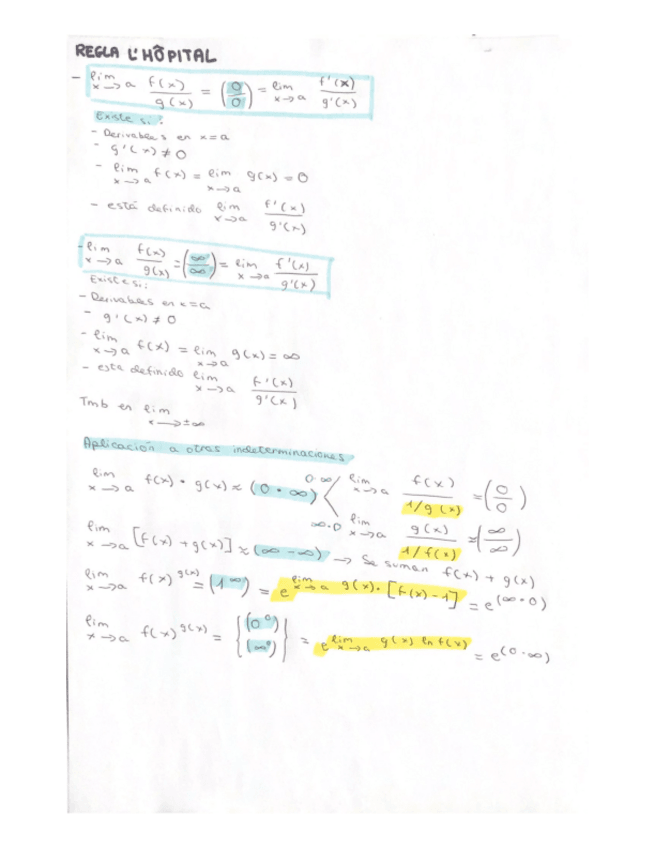 REGLA L'HÔPITAL
- lim x→a f(x)/g(x) = (0/0) = lim x→a f'(x)/g'(x)
Existe si:
- Derivables en x=a
- g'(x) ≠ 0
- lim x→a f(x) = lim x→a g(x) = 0
- está definido lim x→a f'(x)/g'(x)
- lim x→a f(x)/g(x) = (∞/∞) = lim x→a f'(x)/g'(x)
Existe si:
- Derivables en x=a
- g'(x) ≠ 0
- lim x→a f(x) = lim x→a g(x) = ∞
- esta definido lim x→a f'(x)/g'(x)
Tmb en lim x→±∞
Aplicación a otras indeterminaciones
lim x→a f(x) · g(x) ≈ (0·∞) 0·∞ lim x→a f(x)/(1/g(x)) = (0/0)
∞·0 lim x→a g(x)/(1/f(x)) = (∞/∞)
lim x→a [f(x) + g(x)] ≈ (∞-∞) → Se suman f(x) + g(x)
lim x→a f(x)^g(x) = (1^∞) = e^(lim x→a g(x)·[f(x)-1]) = e^(∞·0)
lim x→a f(x)^g(x) = {(0^0) (∞^0)} = e^(lim x→a g(x) ln f(x)) = e^(0·∞)